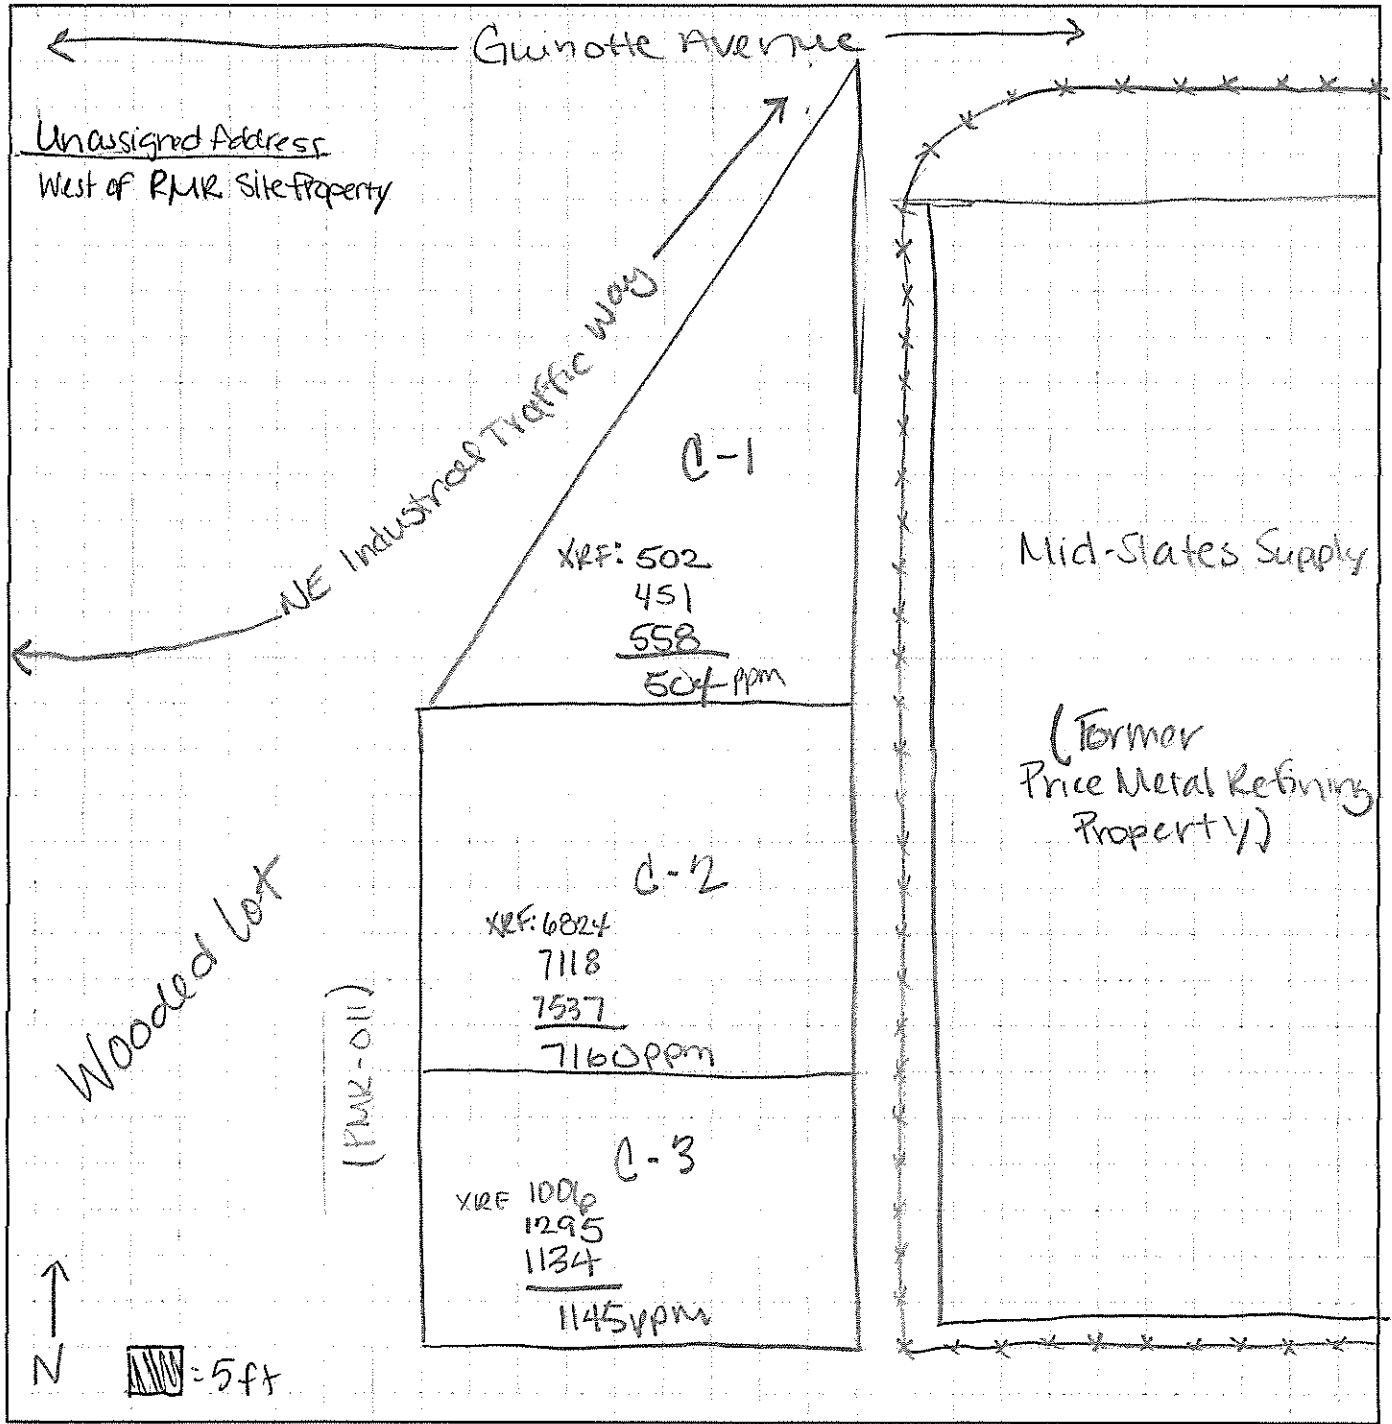 Guinotte Avenue
Unassigned Address
West of RMR Site Property
NE Industrial Traffic Way
C-1
XRF: 502
451
558
504 ppm
Mid-States Supply
(Former
Price Metal Refining
Property)
C-2
XRF: 6824
7118
7537
7160 ppm
Wooded Lot
(PMR-011)
C-3
XRF 1006
1295
1134
1145 ppm
N
= 5ft